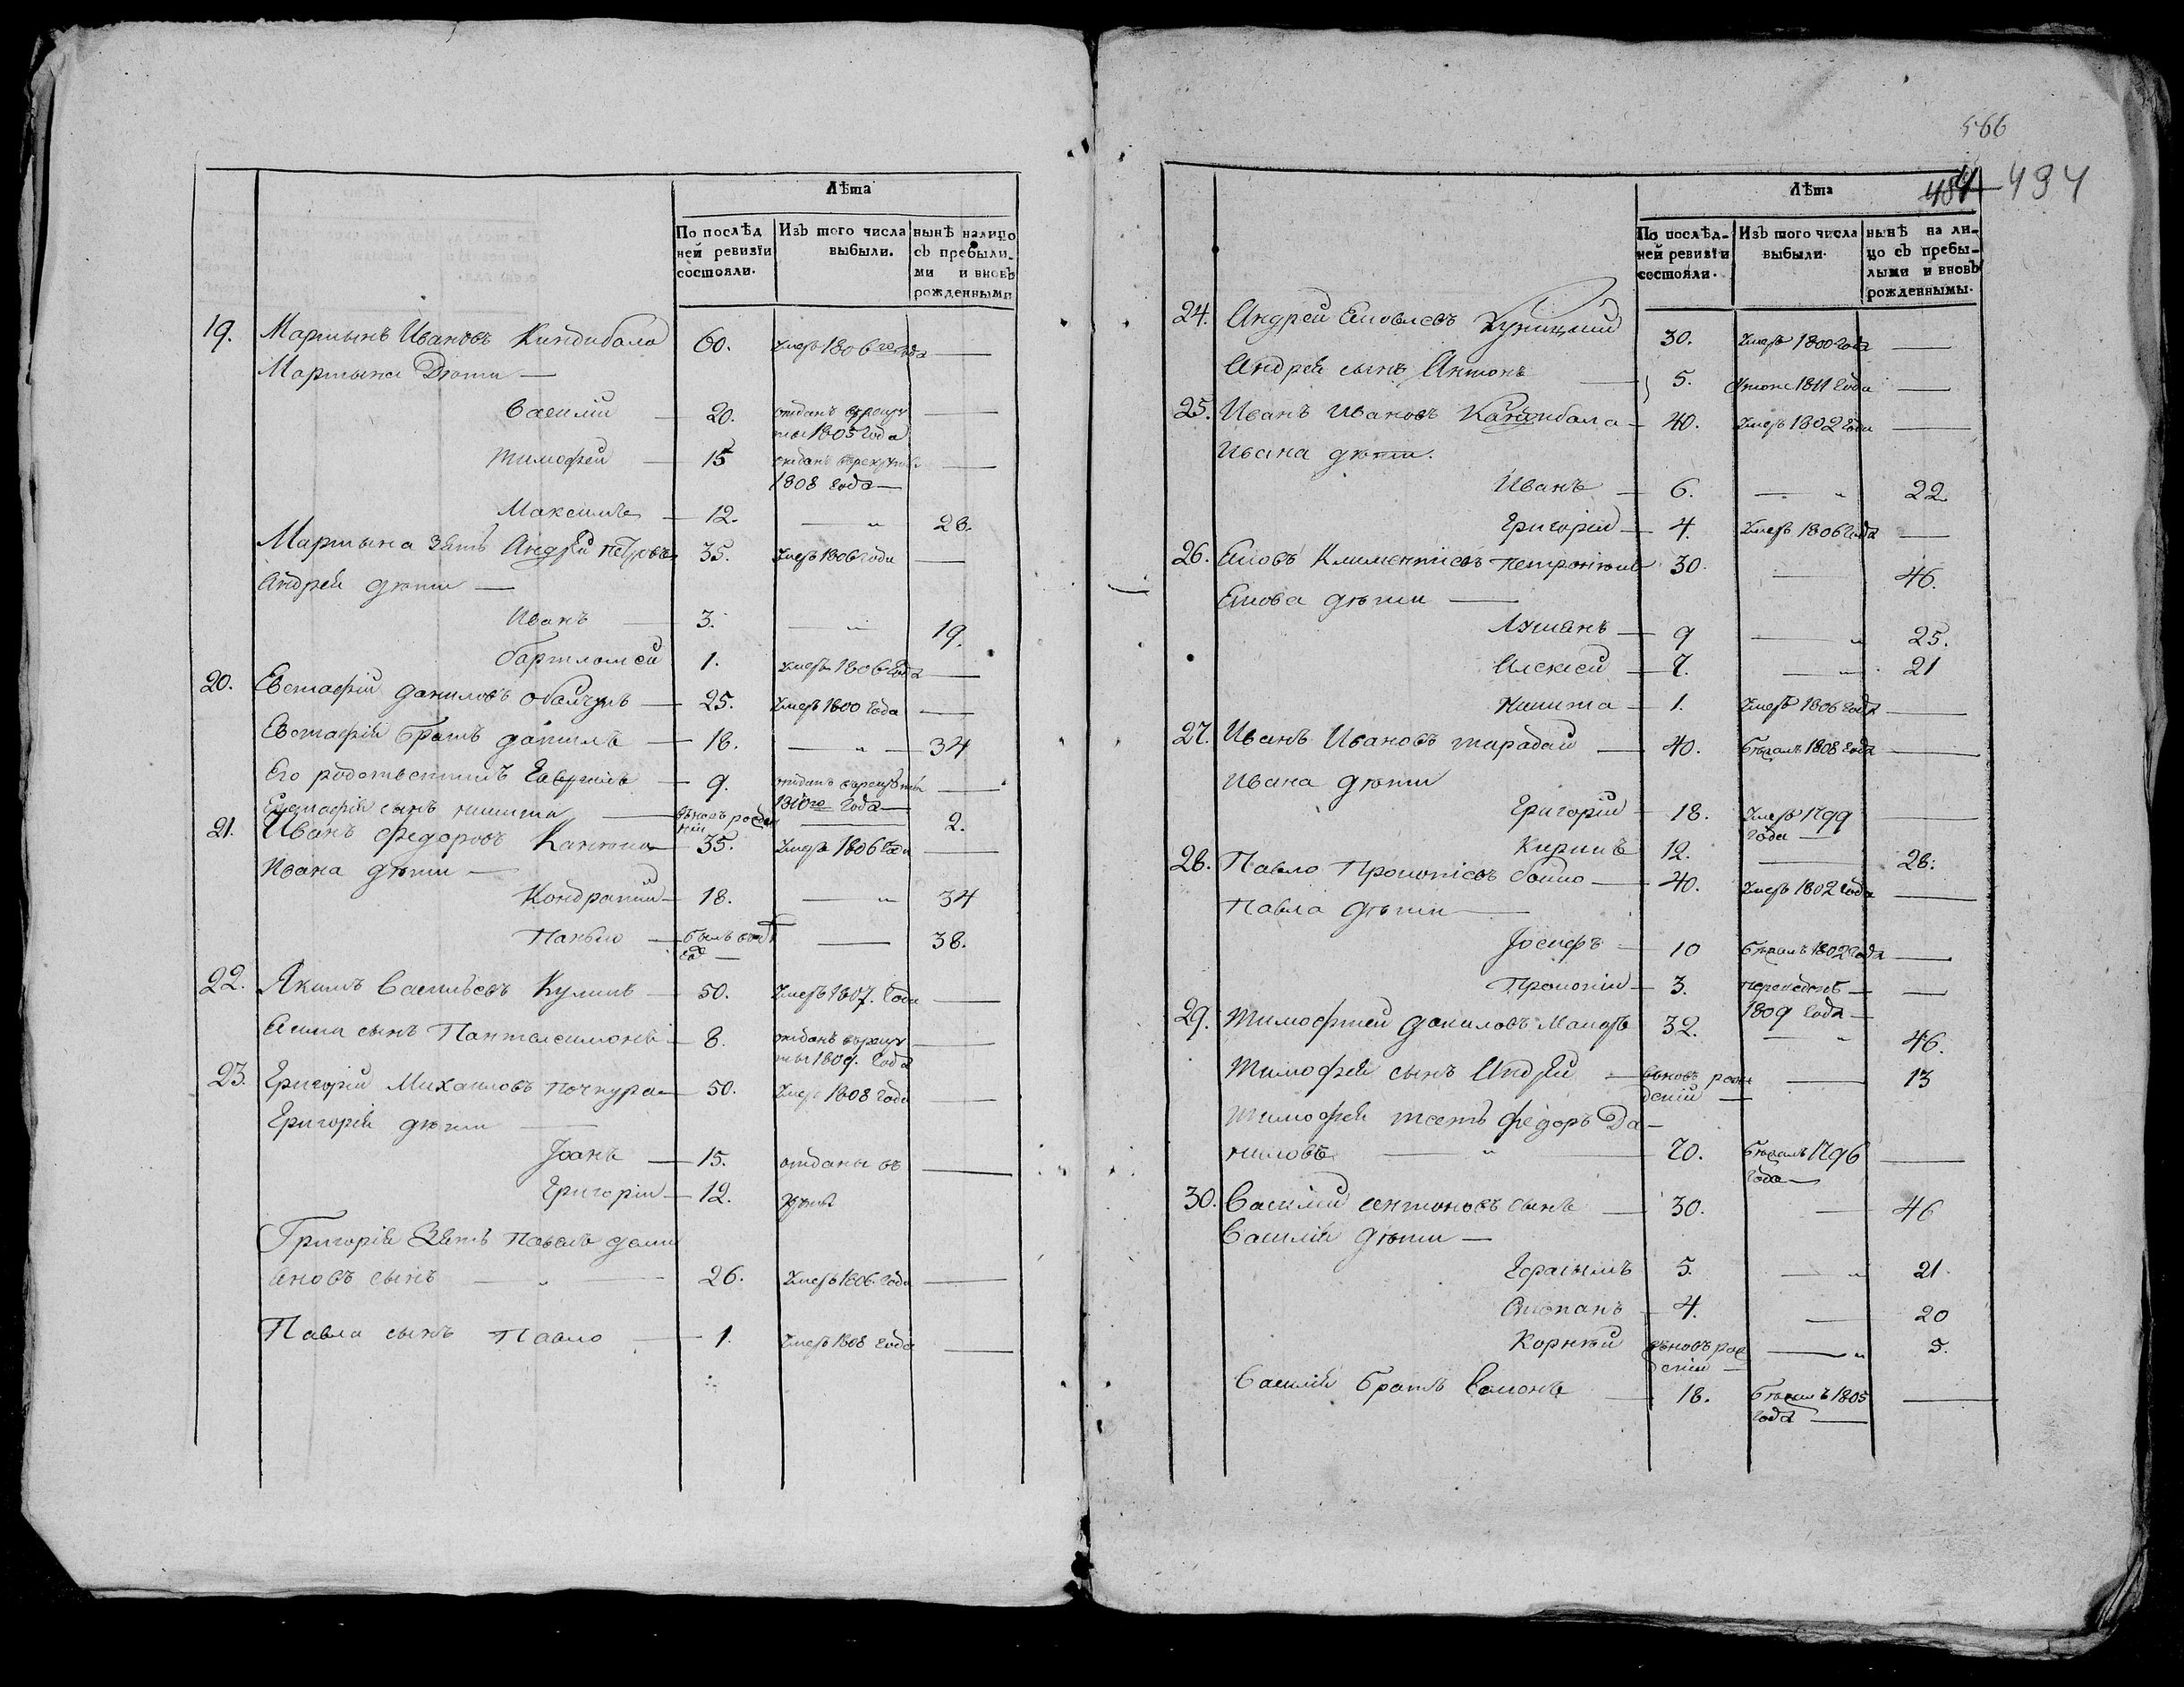 Лѣта
По послѣд
ней ревизіи
состояли.
Изъ того числа
выбыли.
нынѣ налицо
съ прѣбыли
ми и вновь
рожденными
19. Мартынъ Ивановъ Киндибала 60. умеръ 1806 года —
Мартына Дѣти —
Василий — 20. отданъ врекру
ты 1805 года —
Тимофей — 15 отданъ врекруты
1808 года —
Максимъ — 12. — „ 28.
Мартына зять Андрей Петровъ 35. умеръ 1806 года —
Андрея дѣти —
Иванъ — 3. — „ 19.
Бартломей 1. умеръ 1806 года —
20. Евстафій Даниловъ — 25. умеръ 1800 года —
Евстафія братъ Данилъ — 18. — „ — 34
Его родственникъ — 9. отданъ врекруты —
1810го года —
Евстафія сынъ Никита — вновь рожде
ній — 2.
21. Иванъ Федоровъ 35. умеръ 1806 года —
Ивана дѣти —
Кондратій — 18. — „ 34
Панько — былъ —
38.
22. Якимъ Васильевъ Куликъ — 50. умеръ 1807. года —
Якима сынъ Пантелеимонъ — 8. отданъ врекру
ты 1809. года —
23. Григорій Михаиловъ Почкура — 50. умеръ 1808 года —
Григорія дѣти —
Іоанъ — 15. отданы въ —
Григорій — 12.
Григорія Зять Павелъ Деми
яновъ сынъ — „ — 26. умеръ 1806. года —
Павла сынъ Павло — 1. умеръ 1808 года —
566
484 494
Лѣта
По послѣд-
ней ревизіи
состояли.
Изъ того числа
выбыли.
нынѣ на ли-
цо съ прѣбы-
лыми и вновь
рожденнымы.
24. Андрей Яковлевъ 30. умеръ 1800 года —
Андрея сынъ Антонъ — 5. 1811 года —
25. Иванъ Ивановъ — 40. умеръ 1802 года —
Ивана дѣти.
Иванъ — 6. — „ 22.
Григорій — 4. умеръ 1806 года —
26. Яковъ Климентіевъ 30. — 46.
Якова дѣти —
Лукianъ — 9 — „ 25.
Алексей — 7. — „ 21
Никита — 1. умеръ 1806 года —
27. Иванъ Ивановъ Тарадай — 40. бежалъ 1808 года —
Ивана дѣти
Григорій — 18. умеръ 1799 —
года —
Кирилъ 12. — 28.
28. Павло Прокопіевъ Бойко — 40. умеръ 1802 года —
Павла дѣти —
Іосифъ — 10 бежалъ 1802 года —
Прокопій — 3. переведенъ — —
1809 года —
29. Тимофтей Даниловъ 32. — „ 46.
Тимофея сынъ Андрей — вновь рож
деній — — 13
Тимофея тесть Федоръ Да-
ниловъ — „ — 70. бежалъ 1796 —
года —
30. Василий Антоновъ сынъ — 30. — 46
Василия дѣти —
Герасимъ 5. — „ 21
Степанъ — 4. — 20
Корнѣй вновь рож — „ 5.
деній —
Василия братъ Самонъ — 18. бежалъ 1805 —
года —